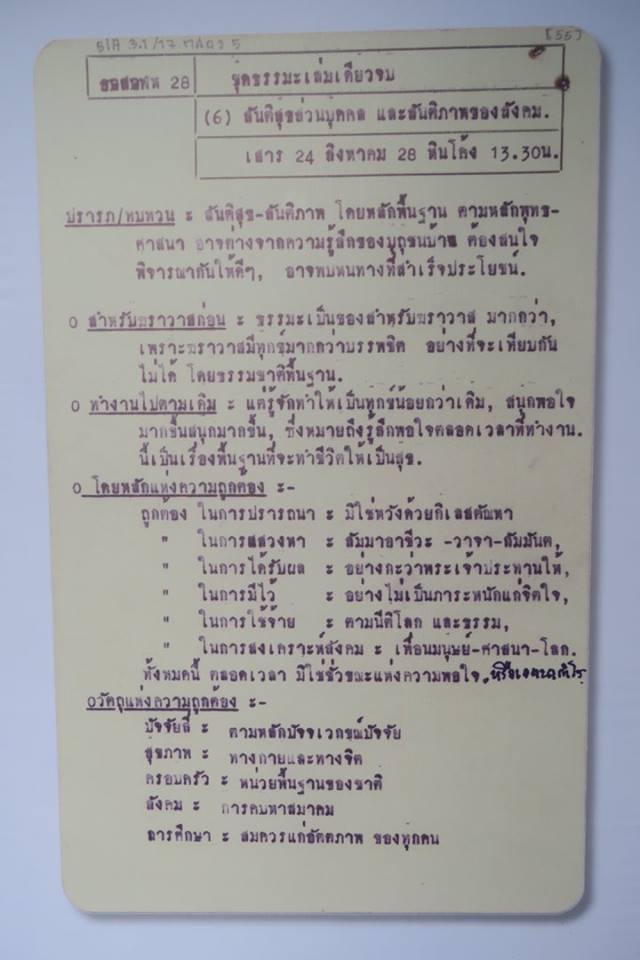 BIA 3.1/17 กล่อง 5 [55]
อสอฟห 28 ชุดธรรมะเล่มเดียวจบ
(6) สันติสุขส่วนบุคคล และสันติภาพของสังคม.
เสาร 24 สิงหาคม 28 หินโค้ง 13.30น.
ปรารภ/ทบทวน ะ สันติสุข-สันติภาพ โดยหลักพื้นฐาน ตามหลักพุทธ-
ศาสนา อาจต่างจากความรู้สึกของปุถุชนบ้าน ต้องสนใจ
พิจารณากันให้ดีๆ, อาจพบหนทางที่สำเร็จประโยชน์.
o สำหรับฆราวาสก่อน ะ ธรรมะเป็นของสำหรับฆราวาส มากกว่า,
เพราะฆราวาสมีทุกข์มากกว่าบรรพชิต อย่างที่จะเทียบกัน
ไม่ได้ โดยธรรมชาติพื้นฐาน.
o ทำงานไปตามเดิม ะ แต่รู้จักทำให้เป็นทุกข์น้อยกว่าเดิม, สนุกพอใจ
มากขึ้นสนุกมากขึ้น, ซึ่งหมายถึงรู้สึกพอใจตลอดเวลาที่ทำงาน.
นี้เป็นเรื่องพื้นฐานที่จะทำชีวิตให้เป็นสุข.
o โดยหลักแห่งความถูกต้อง ะ-
ถูกต้อง ในการปรารถนา ะ มิใช่หวังด้วยกิเลสตัณหา
" ในการสสวงหา ะ สัมมาอาชีวะ -วาจา-สัมมันต,
" ในการได้รับผล ะ อย่างกะว่าพระเจ้าประทานให้,
" ในการมีไว้ ะ อย่างไม่เป็นภาระหนักแก่จิตใจ,
" ในการใช้จ่าย ะ ตามนีติโลก และธรรม,
" ในการสงเคราะห์สังคม ะ เพื่อนมนุษย์-ศาสนา-โลก.
ทั้งหมดนี้ ตลอดเวลา มิใช่ชั่วขณะแห่งความพอใจ, หรือเจตนากำไร
oวัตถุแห่งความถูกต้อง ะ-
ปัจจัยสี่ ะ ตามหลักปัจจเวกขณ์ปัจจัย
สุขภาพ ะ ทางกายและทางจิต
ครอบครัว ะ หน่วยพื้นฐานของชาติ
สังคม ะ การคบหาสมาคม
การศึกษา ะ สมควรแก่อัตตภาพ ของทุกคน